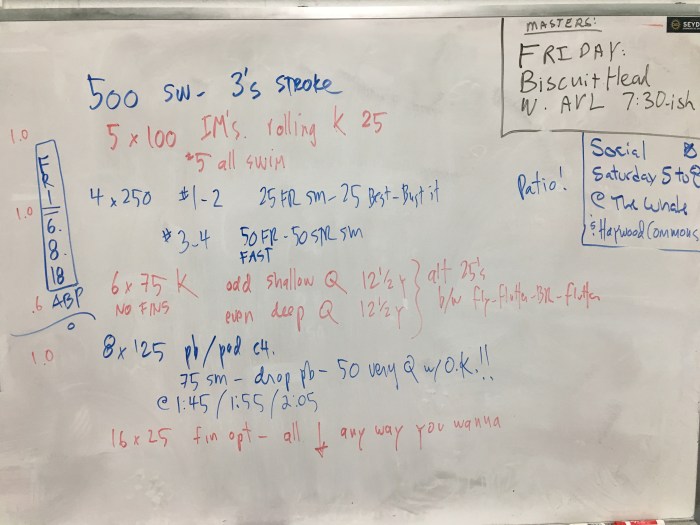 SEYD
MASTERS:
FRIDAY:
Biscuit Head
W. AVL 7:30-ish
Social
Saturday 5 to 8
@ The Whale
& Haywood Common
Patio!
FRI
6.
8.
18
ABP
1.0
1.0
.6
1.0
500 sw - 3's stroke
5 x 100 IM's. rolling K 25
*5 all swim
4 x 250 #1-2 25 FR sm - 25 Brst - Bust it
#3-4 50 FR - 50 STR sm
FAST
6 x 75 K odd shallow Q 12 1/2 y } alt 25's
NO FINS even deep Q 12 1/2 y } b/w fly-flutter-BR-flutter
8 x 125 pb/pad c4.
75 sm - drop pb - 50 very Q w/ O.K.!!
@ 1:45 / 1:55 / 2:05
16 x 25 fin opt - all ↓ any way you wanna